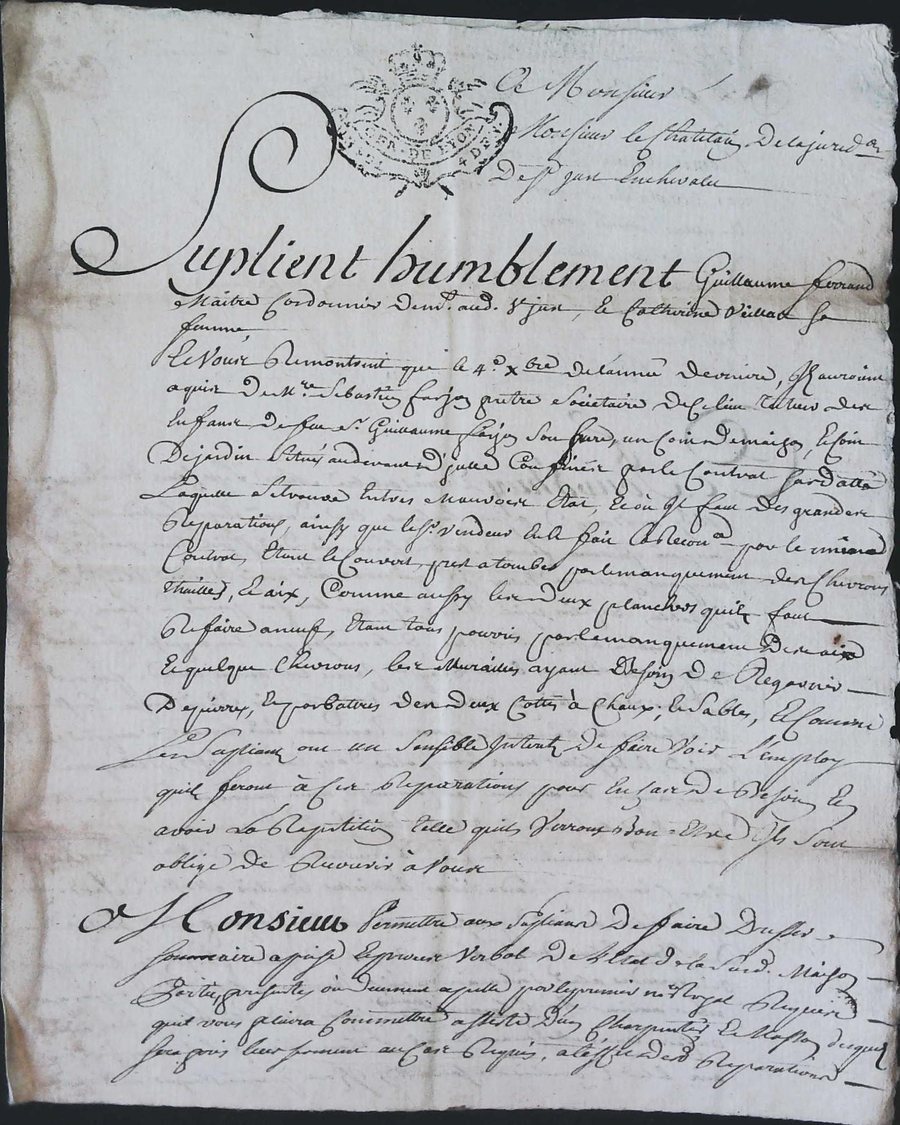 GER. DE LYON
4 D F V
A Monsieur
Monsieur le Chatelain De la jurid.on
De st jan
Suplient humblement Guillaume ferrand
Maitre Cordonnier aud. st jan, et Catherine sa
femme
Et Vous Remontrent que le 4.e Xbre De lannée Derniere, Ils auroient
aquis De Mre Sebastien pretre Societaire De tuteur des
Enfans De feu sr. Guillaume son frere, un Coin de maison, et Coin
De jardin Situés Confinés par le Contrat
Laquelle Setrouve En tres Mauvais Etat, Et où Il faut Des grandes
Reparations, ainsy que le sr. vendeur la par le même
Contrat, Etant le Couvert, prest a tomber par le manquement des Chevrons
thuilles, et aix, Comme aussy les deux planchers qu'il faut
Refaire aneuf, Etant tous pourris par le manquement Des aix
Et quelque Chevrons, les Murailles ayant Besoin De Regarnir
De pierres, et rebattres des deux Cottés à Chaux, et Sables, Et Comme
Les Suplians ont un Sensible Interest De faire Voir L'employ
quils feront à Ces Reparations pour En Cas De Besoin En
avoir La Repetition telle quils Verront Bon Estre Ils Sont
obligé De Recourir à Vous
Monsieur Permettre aux Suplians De faire Dresser
sommaire aprise Et Verbal De L'Etat De la Susd. Maison
Partie presentes ou Duement apellé par le premier nore Royal Requis
quil vous plaira Commettre assisté D'un Charpentier Et Masson Duquel
sera pris leur serment au Cas Requis, a l'effet des d. Reparations